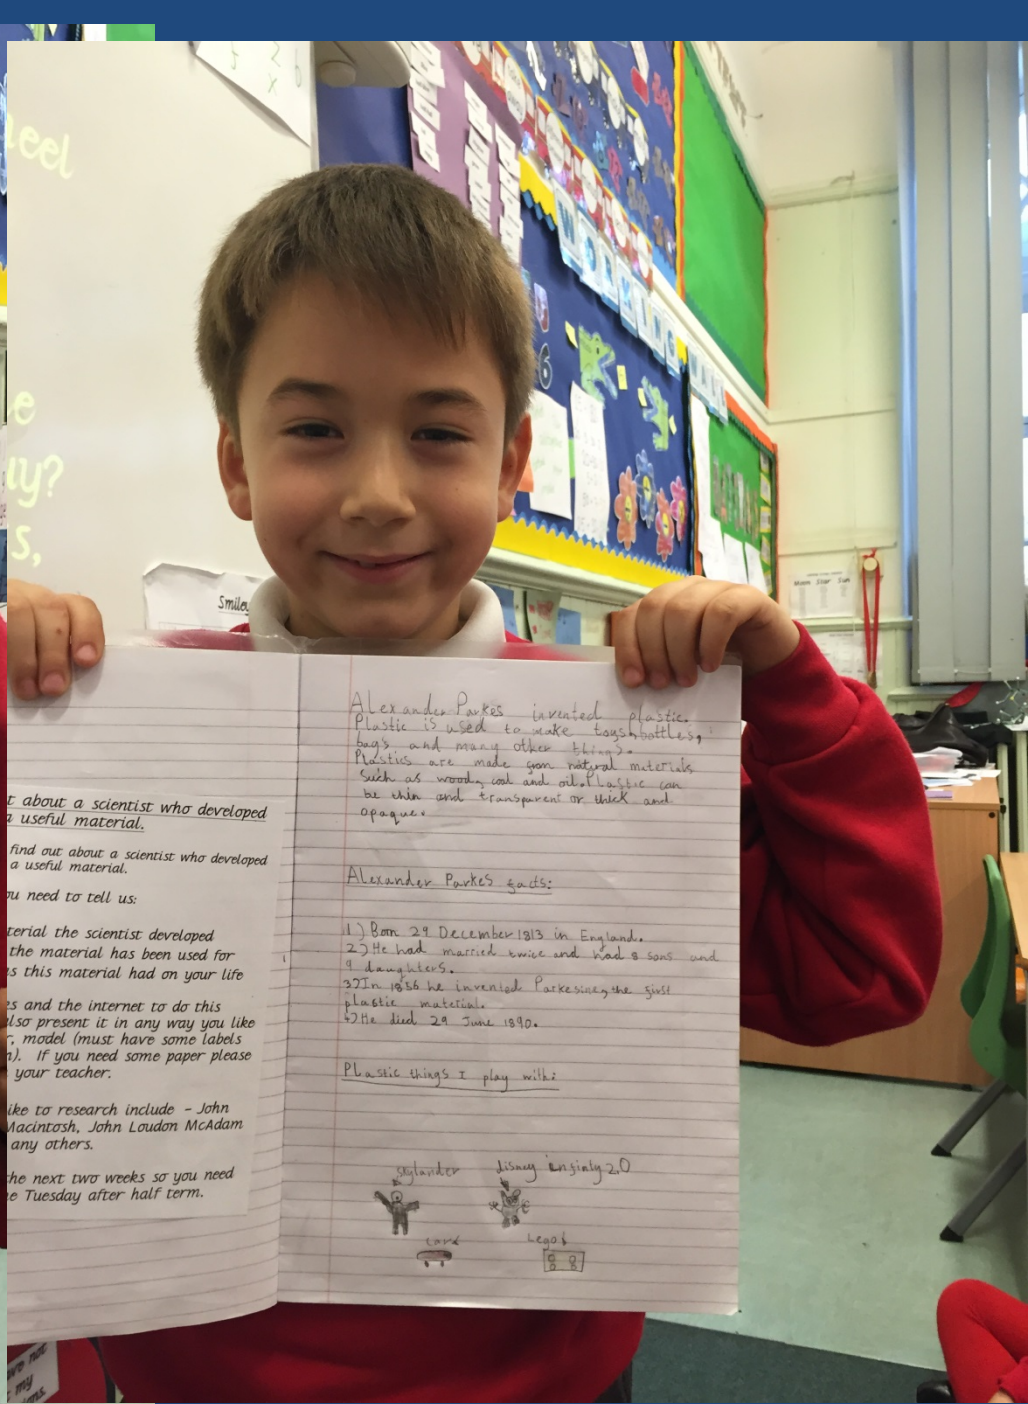 eel
e
ay?
s,
Smiley
WORKING WALL
6
Moon Star Sun
t about a scientist who developed
a useful material.
find out about a scientist who developed
a useful material.
ou need to tell us:
terial the scientist developed
the material has been used for
s this material had on your life
es and the internet to do this
also present it in any way you like
r, model (must have some labels
n). If you need some paper please
your teacher.
ike to research include - John
Macintosh, John Loudon McAdam
any others.
the next two weeks so you need
e Tuesday after half term.
Alexander Parkes invented plastic.
Plastic is used to make toys, bottles,
bags and many other things.
Plastics are made from natural materials
such as wood, coal and oil. Plastic can
be thin and transparent or thick and
opaque.
Alexander Parkes facts:
1) Born 29 December 1813 in England.
2) He had married twice and had 8 sons and
9 daughters.
3) In 1856 he invented Parkesine, the first
plastic material.
4) He died 29 June 1890.
Plastic things I play with:
skylander
disney infinity 2.0
cars
Legos
ave not
my